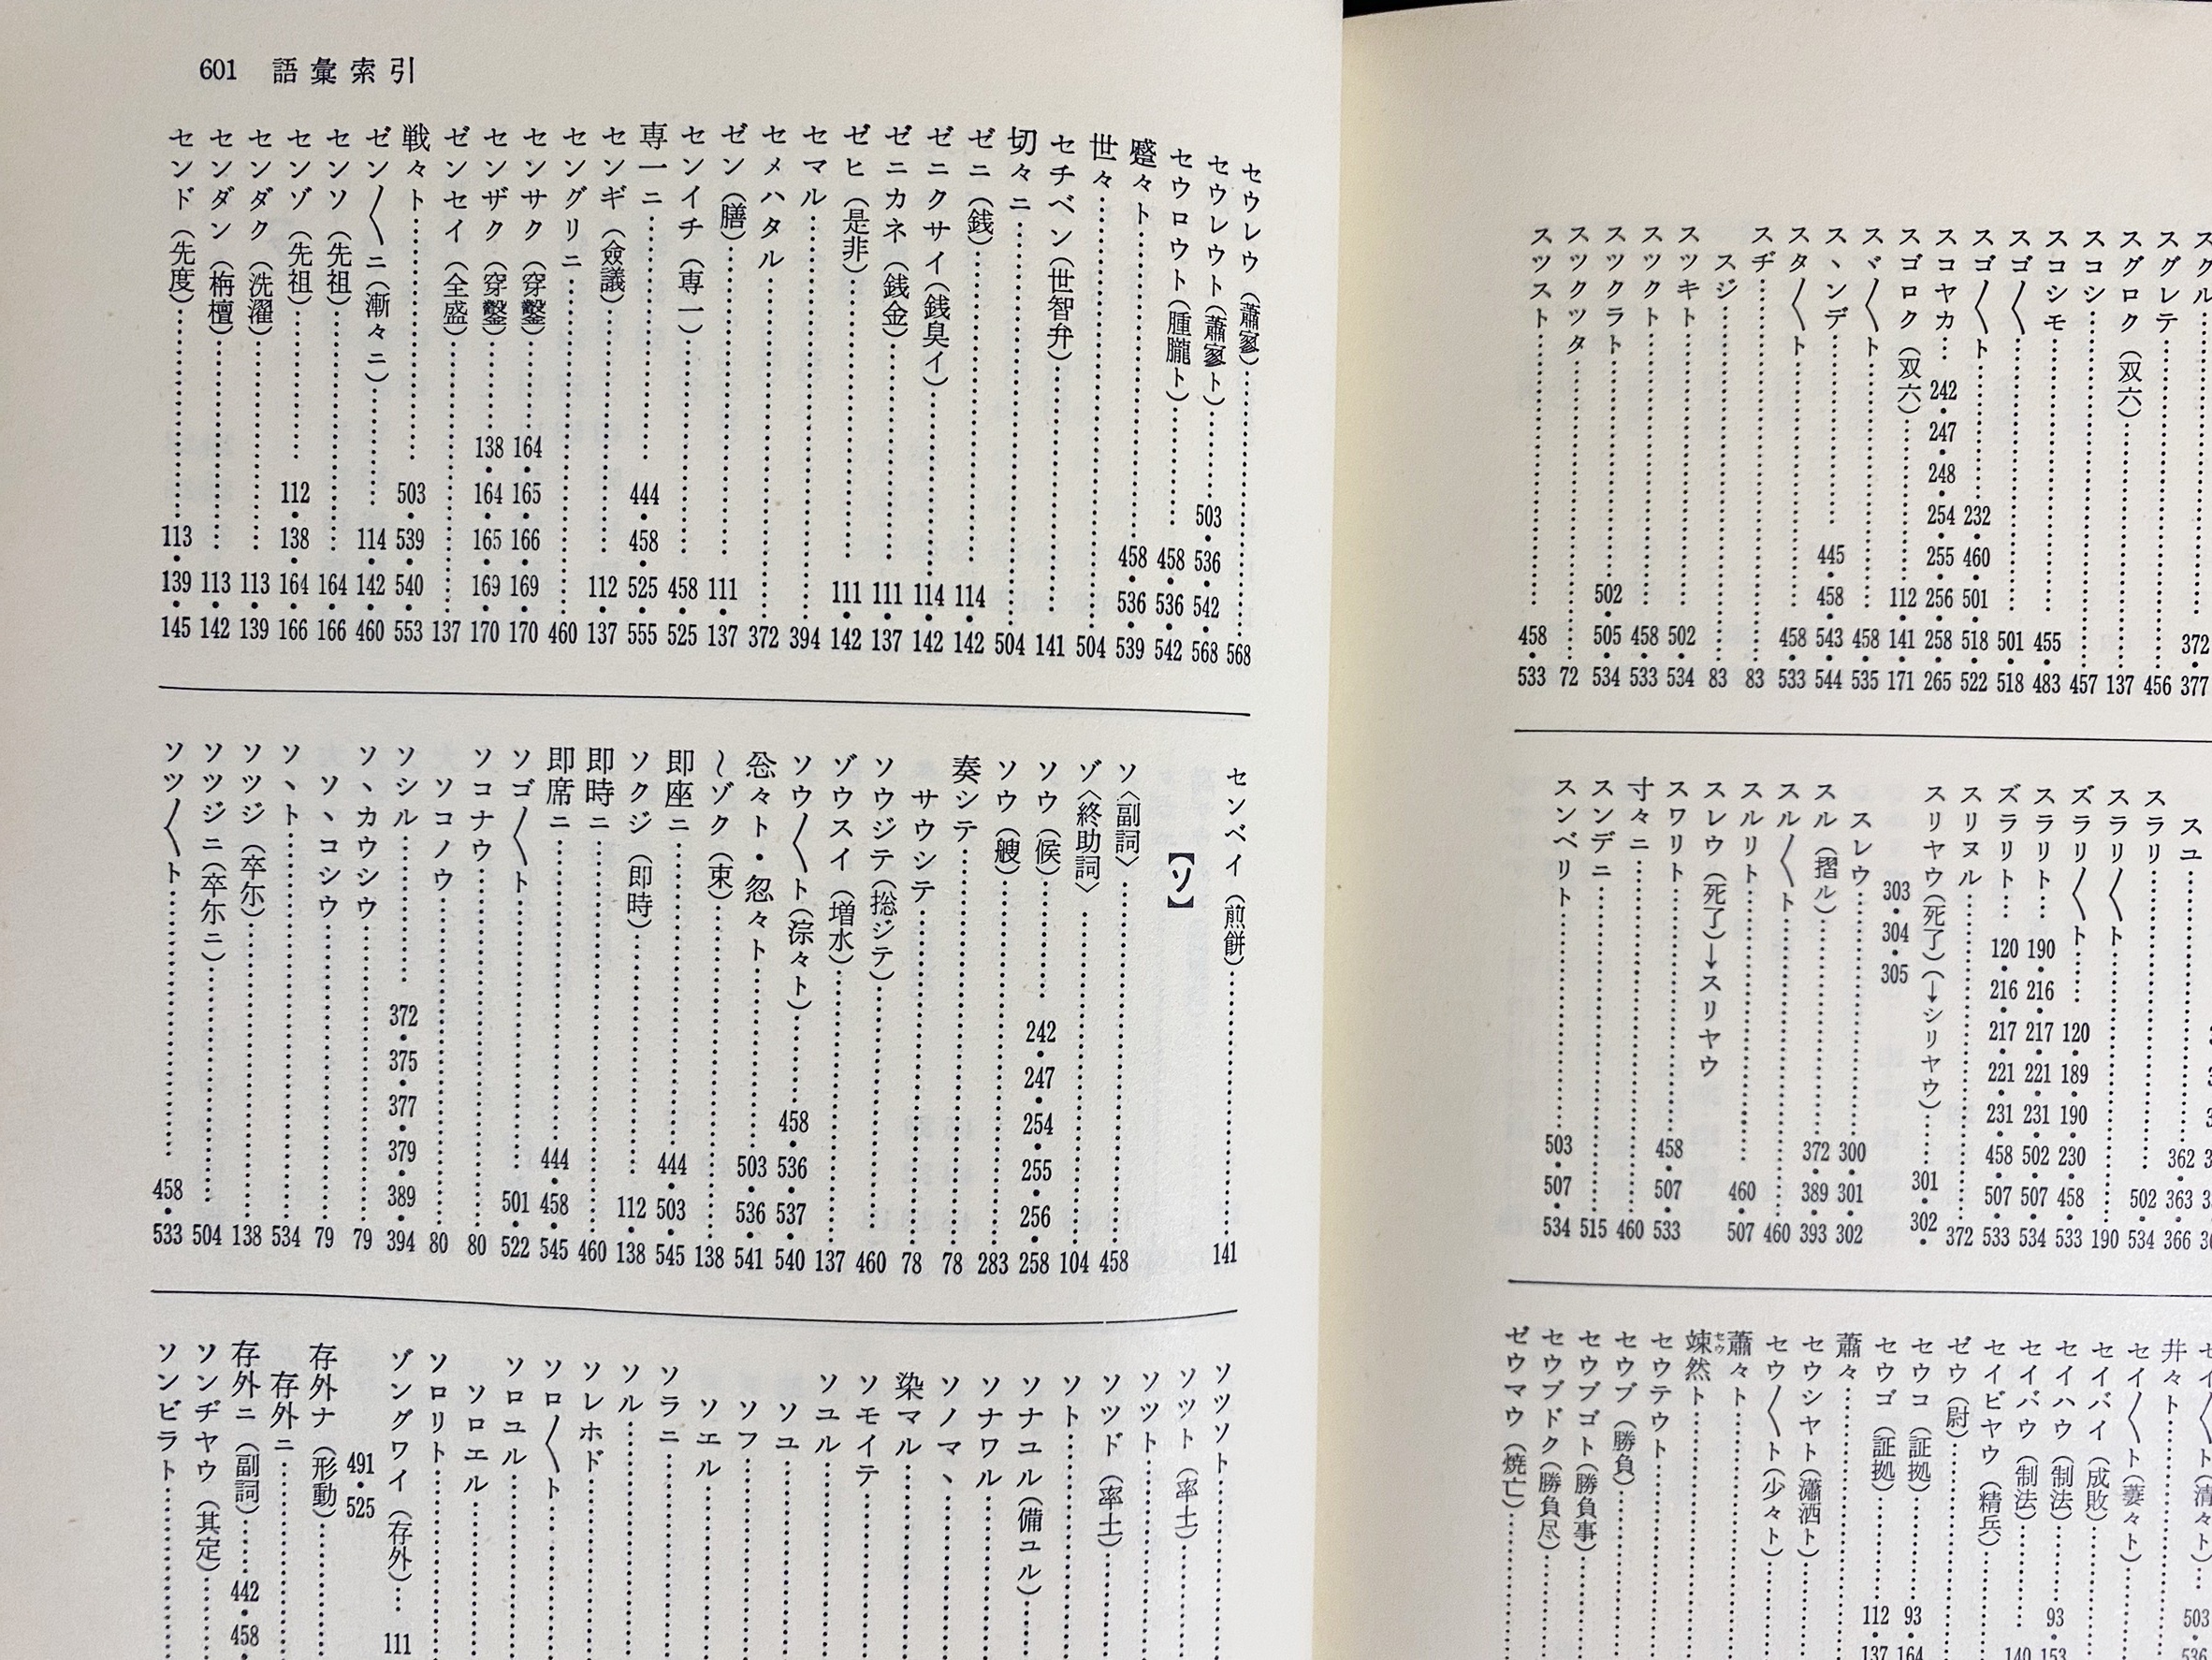 スグレテ……456
スグロク(双六)……137
スコシ……457
スコシモ……455・483
スゴ〱……501・518
スゴ〱ト……232・460・501・518・522
スコヤカ……242・247・248・254・255・256・258・265
スゴロク(双六)……112・141・171
スヾ〱ト……458・535
スヽンデ……445・458・543・544
スタ〱ト……458・533
スヂ……83
スジ……83
スツキト……502・534
スツクト……458・533
スツクラト……502・505・534
スツクツタ……72
スツスト……458・533
スユ……362・363・366
スラリ……502・534
スラリ〱ト……190
ズラリ〱ト……120・189・190・230・458・533
スラリト……190・216・217・221・231・502・507・534
ズラリト……120・216・217・221・231・458・507・533
スリヌル……372
スリヤウ(死了)(→シリヤウ)……301・302・
303・304・305
スレウ……300・301・302
スル(摺ル)……372・389・393
スル〱ト……460
スルリト……460・507
スレウ(死了)→スリヤウ
スワリト……458・507・533
寸々ニ……460
スンデニ……515
スンベリト……503・507・534
井々ト……
セイ〱ト(萋々ト)……
セイバイ(成敗)……
セイハウ(制法)……93・153
セイバウ(制法)……140
セイビヤウ(精兵)……
ゼウ(尉)……
セウコ(証拠)……93・164
セウゴ(証拠)……112・137
蕭々……
セウシヤト(瀟洒ト)……
セウ〱ト(少々ト)……
蕭々ト……
竦然ト……
セウテウト……
セウブ(勝負)……
セウブゴト(勝負事)……
セウブドク(勝負尽)……
ゼウマウ(焼亡)……
601 語彙索引
セウレウ(蕭寥)……568
セウレウト(蕭寥ト)……503・536・542・568
セウロウト(朣朧ト)……458・536・542
蹙々ト……458・536・539
世々……504
セチベン(世智弁)……141
切々ニ……504
ゼニ(銭)……114・142
ゼニクサイ(銭臭イ)……114・142
ゼニカネ(銭金)……111・137
ゼヒ(是非)……111・142
セマル……394
セメハタル……372
ゼン(膳)……111・137
センイチ(専一)……458・525
専一ニ……444・458・525・555
センギ(僉議)……112・137
セングリニ……460
センサク(穿鑿)……164・165・166・169・170
センザク(穿鑿)……138・164・165・169・170
ゼンセイ(全盛)……137
戦々ト……503・539・540・553
ゼン〱ニ(漸々ニ)……114・142・460
センソ(先祖)……164・166
センゾ(先祖)……112・138・164・166
センダク(洗濯)……113・139
センダン(栴檀)……113・142
センド(先度)……113・139・145
センベイ(煎餅)……141
【ソ】
ソ〈副詞〉……458
ゾ〈終助詞〉……104
ソウ(候)……242・247・254・255・256・258
ソウ(艘)……283
奏シテ……78
サウシテ……78
ソウジテ(捴ジテ)……460
ゾウスイ(増水)……137
ソウ〱ト(淙々ト)……458・536・537・540
忩々ト・怱々ト……503・536・541
〜ゾク(束)……138
即座ニ……444・503・545
ソクジ(即時)……112・138
即時ニ……460
即席ニ……444・458・545
ソゴ〱ト……501・522
ソコナウ……80
ソコノウ……80
ソシル……372・375・377・379・389・394
ソヽカウシウ……79
ソヽコシウ……79
ソヽト……534
ソツジ(卒尓)……138
ソツジニ(卒尓ニ)……504
ソツ〱ト……458・533
ソツソト……
ソツト(率土)……
ソツト……
ソツド(率土)……
ソト……
ソナユル(備ユル)……
ソナワル……
ソノマヽ……
染マル……
ソモイテ……
ソユル……
ソユ……
ソフ……
ソエル……
ソラニ……
ソル……
ソレホド……
ソロ〱ト……
ソロユル……
ソロエル……
ソロリト……
ゾングワイ(存外)……111
491・525
存外ナ(形動)……
存外ニ……
存外ニ(副詞)……442・458・
ソンヂヤウ(其定)……
ソンビラト……